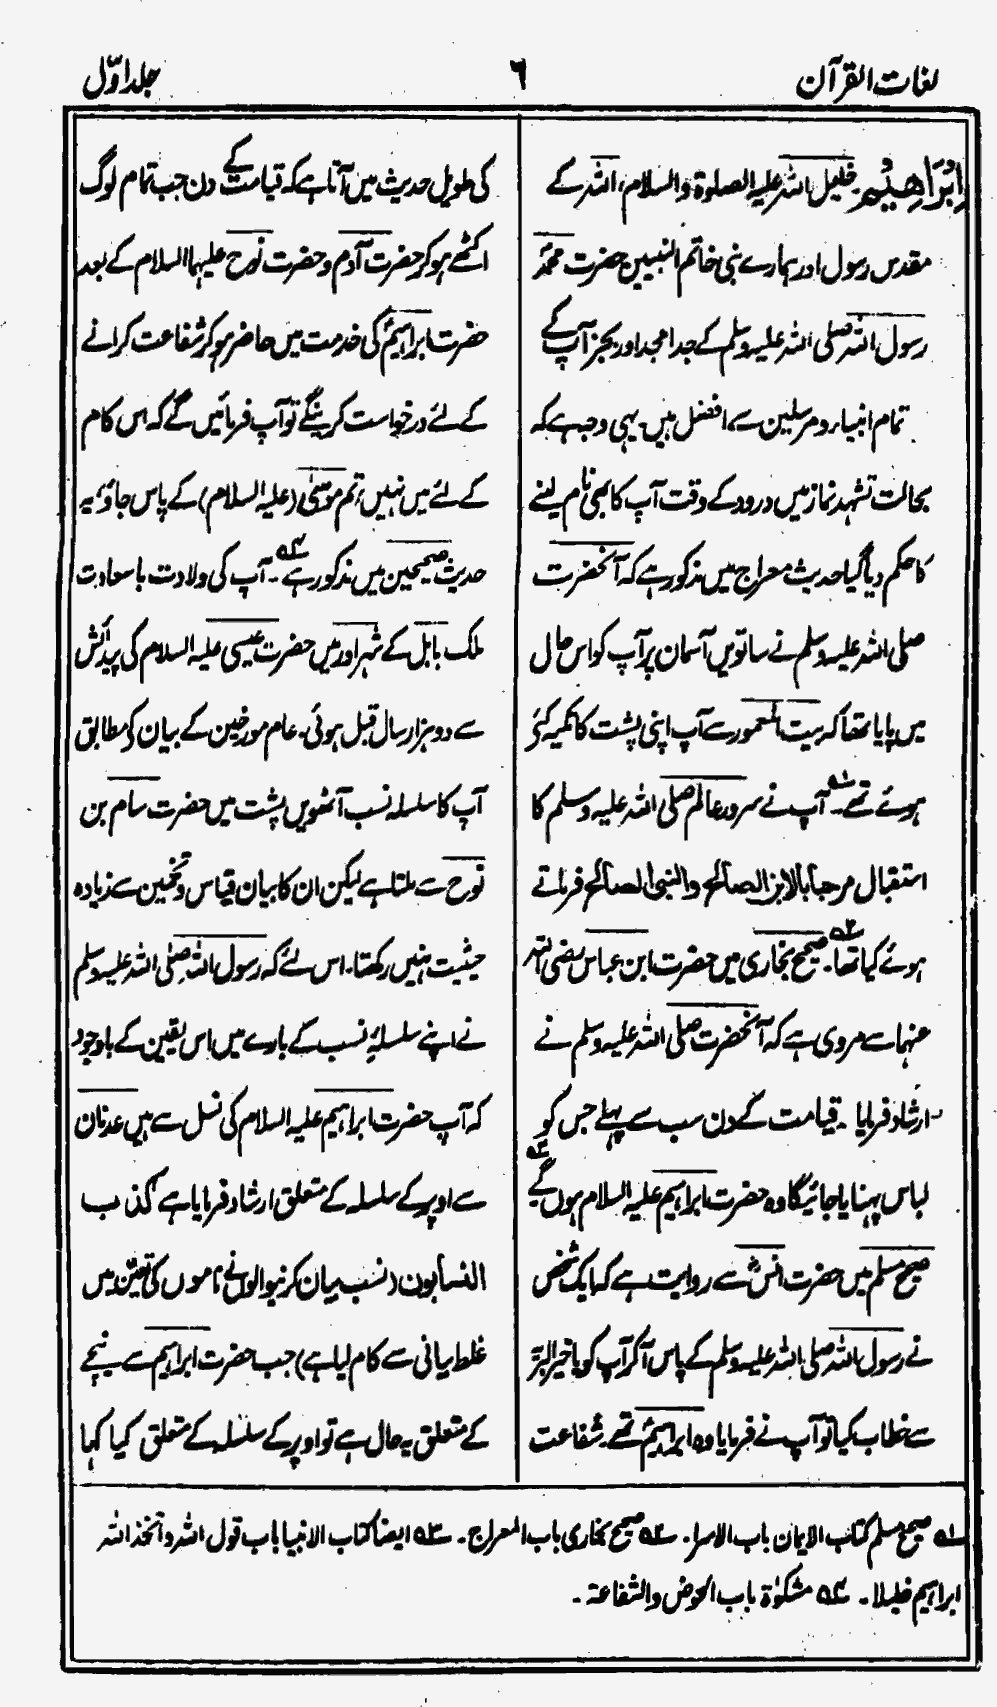 لغات القرآن
٦
جلد اوّل
اِبْرَاهِیْم۔ خلیل اللہ علیہ الصلوٰۃ والسلام، اللہ کے
مقدس رسول اور ہمارے نبی خاتم النبیین حضرت محمدؐ
رسول اللہ صلی اللہ علیہ وسلم کے جد امجد اور بجز آپ کے
تمام انبیاء و مرسلین سے افضل ہیں۔ یہی وجہ ہے کہ
بحالت تشہد نماز میں درود کے وقت آپ کا بھی نام لینے
کا حکم دیا گیا حدیث معراج میں مذکور ہے کہ آنحضرت
صلی اللہ علیہ وسلم نے ساتویں آسمان پر آپ کو اس حال
میں پایا تھا کہ بیت المعمور سے آپ اپنی پشت کا تکیہ کئے
ہوئے تھے۔ ۱ـه آپ نے سرور عالم صلی اللہ علیہ وسلم کا
استقبال مرحبا بالابن الصالح والنبی الصالح فرماتے
ہوئے کیا تھا۔ ۲ـه صحیح بخاری میں حضرت ابن عباس رضی اللہ
عنہما سے مروی ہے کہ آنحضرت صلی اللہ علیہ وسلم نے
ارشاد فرمایا۔ قیامت کے دن سب سے پہلے جس کو
لباس پہنایا جائیگا وہ حضرت ابراہیم علیہ السلام ہوں گے ۳ـه
صحیح مسلم میں حضرت انسؓ سے روایت ہے کہ ایک شخص
نے رسول اللہ صلی اللہ علیہ وسلم کے پاس آکر آپ کو یا خیر البریّہ
سے خطاب کیا تو آپ نے فرمایا وہ ابراہیمؑ تھے۔ شفاعت
کی طویل حدیث میں آتا ہے کہ قیامت کے دن جب تمام لوگ
اکٹھے ہوکر حضرت آدم و حضرت نوح علیہما السلام کے بعد
حضرت ابراہیمؑ کی خدمت میں حاضر ہوکر شفاعت کرانے
کے لئے درخواست کرینگے تو آپ فرمائیں گے کہ اس کام
کے لئے میں نہیں، تم موسیٰ (علیہ السلام) کے پاس جاؤ، یہ
حدیث صحیحین میں مذکور ہے ۴ـه۔ آپ کی ولادت باسعادت
ملک بابل کے شہر اور میں حضرت عیسی علیہ السلام کی پیدائش
سے دو ہزار سال قبل ہوئی۔ عام مورخین کے بیان کے مطابق
آپ کا سلسلہ نسب آٹھویں پشت میں حضرت سام بن
نوح سے ملتا ہے لیکن ان کا بیان قیاس و تخمین سے زیادہ
حیثیت نہیں رکھتا۔ اس لئے کہ رسول اللہ صلی اللہ علیہ وسلم
نے اپنے سلسلۂ نسب کے بارے میں اس یقین کے باوجود
کہ آپ حضرت ابراہیم علیہ السلام کی نسل سے ہیں عدنان
سے اوپر کے سلسلہ کے متعلق ارشاد فرمایا ہے کذب
النسابون (نسب بیان کرنیوالوں نے ناموں کی تعیّن میں
غلط بیانی سے کام لیا ہے) جب حضرت ابراہیم سے نیچے
کے متعلق یہ حال ہے تو اوپر کے سلسلہ کے متعلق کیا کہا
۱ـه صحیح مسلم کتاب الایمان باب الاسرا۔ ۲ـه صحیح بخاری باب المعراج۔ ۳ـه ایضا کتاب الانبیا باب قول اللہ واتخذ اللہ
ابراہیم خلیلا۔ ۴ـه مشکوٰۃ باب الحوض والشفاعۃ۔